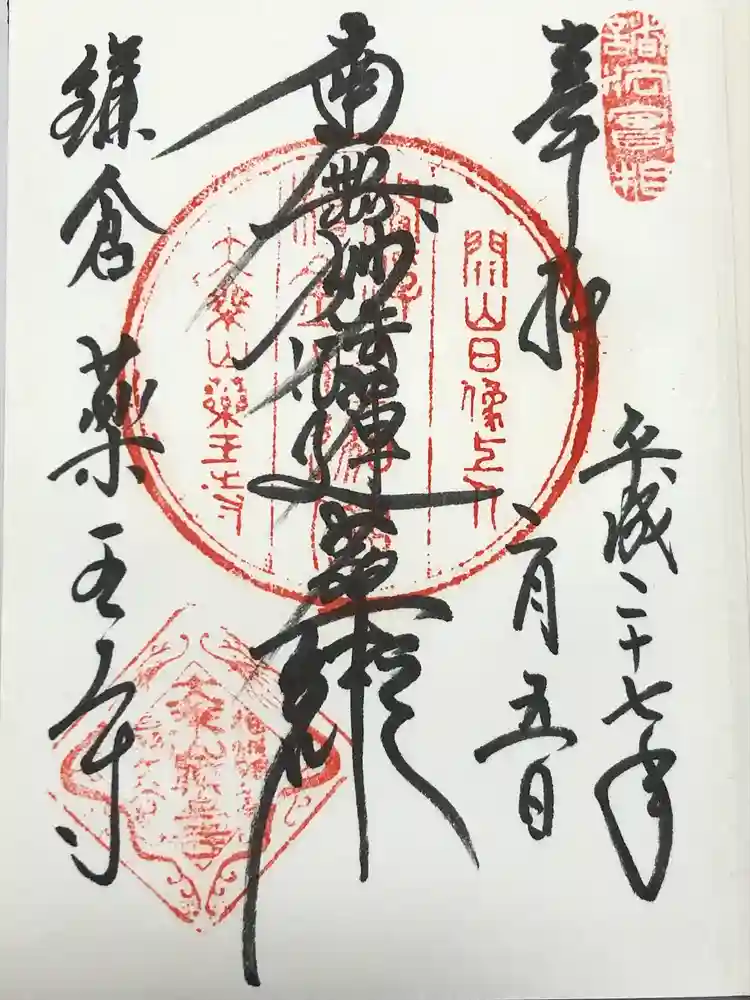 諸法實相
奉拝
平成二十七年
二月五日
開山日像上人
南無妙法蓮華経
大乗山薬王寺
鎌倉 薬王寺